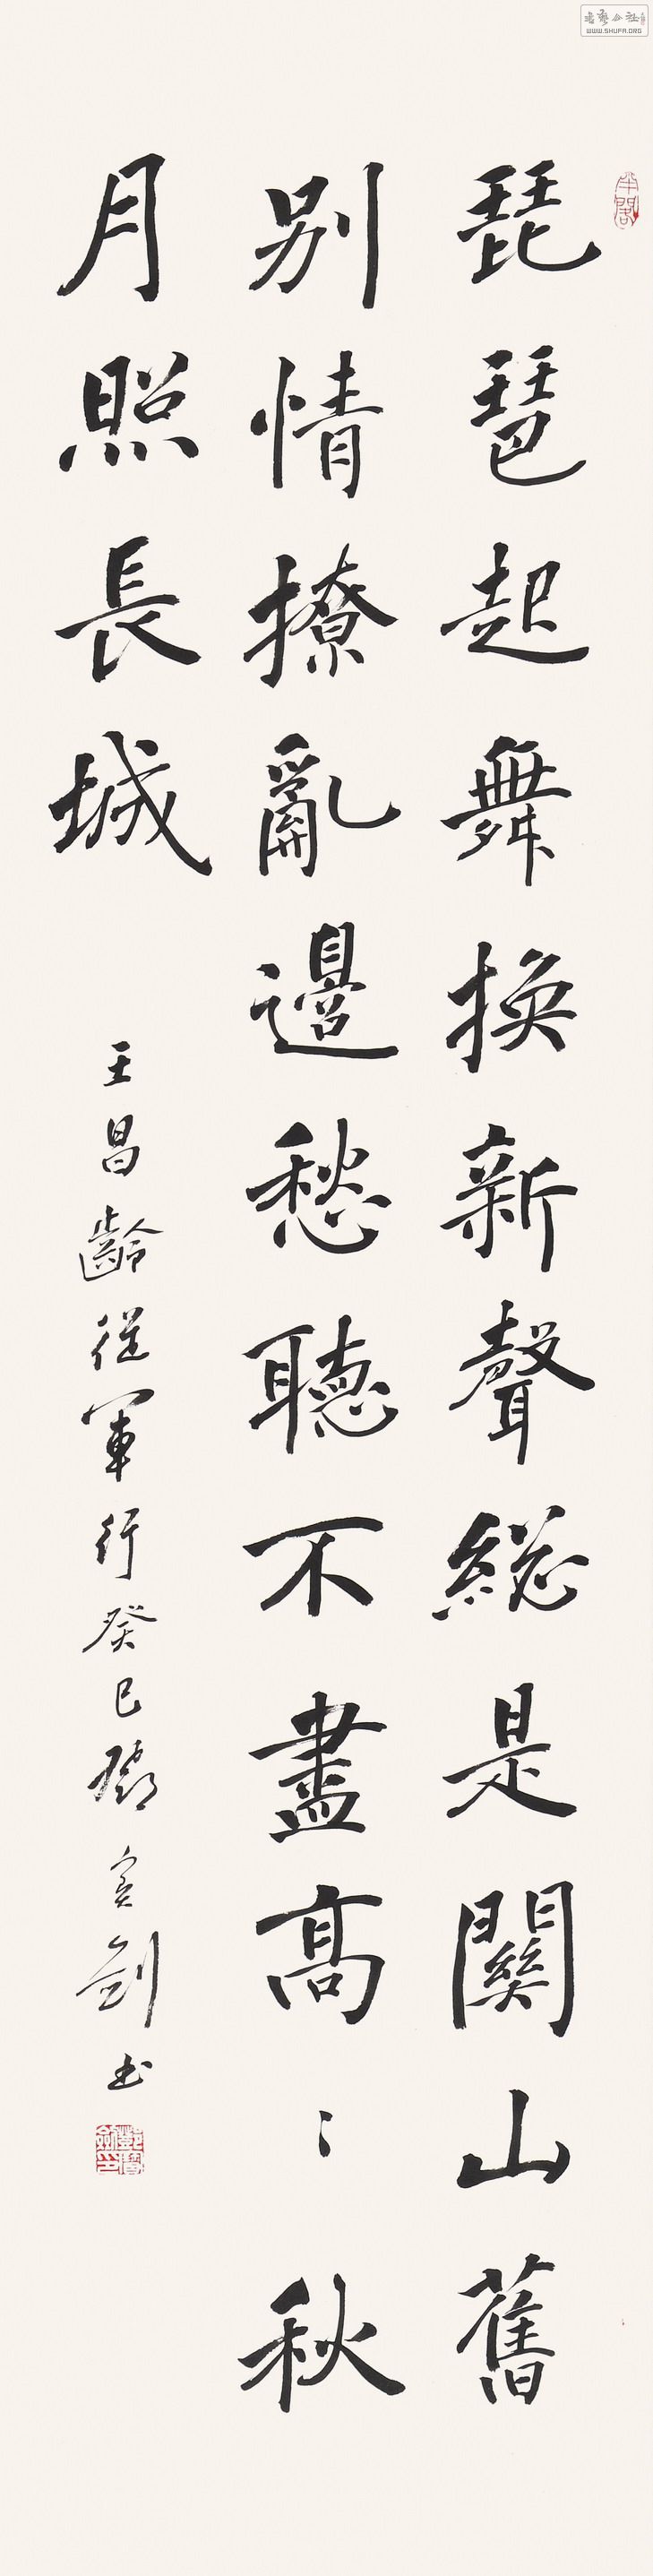 琵琶起舞換新聲總是關山舊
別情撩亂邊愁聽不盡高〻秋
月照長城
王昌齡從軍行癸巳鄧寶劍書
WWW.SHUFA.ORG